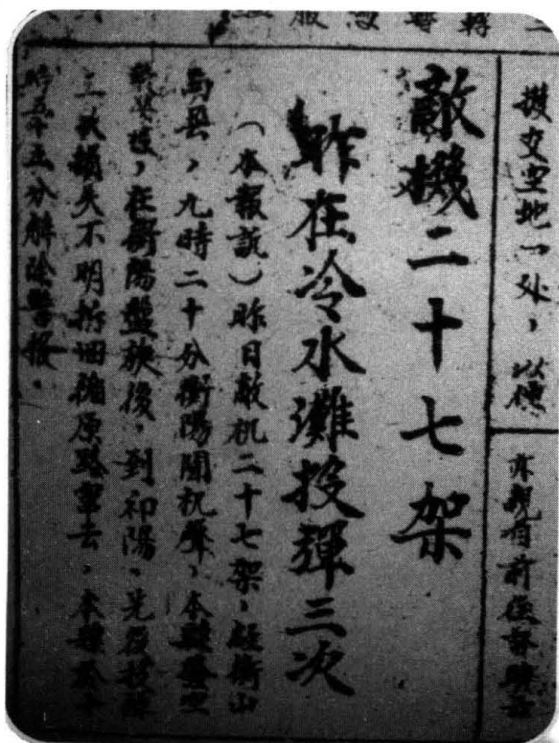 撥交空地一处，以便
亦親自前徃督
敵機二十七架
昨在冷水灘投彈三次
（本報訊）昨日敵机二十七架，經衡山
南县，九時二十分衡陽聞机聲，本縣發空
襲警報，在衡陽盤旋後，到祁陽，先後投彈
三次損失不明折回循原路窜去，本縣於十
時五十五分解除警报。